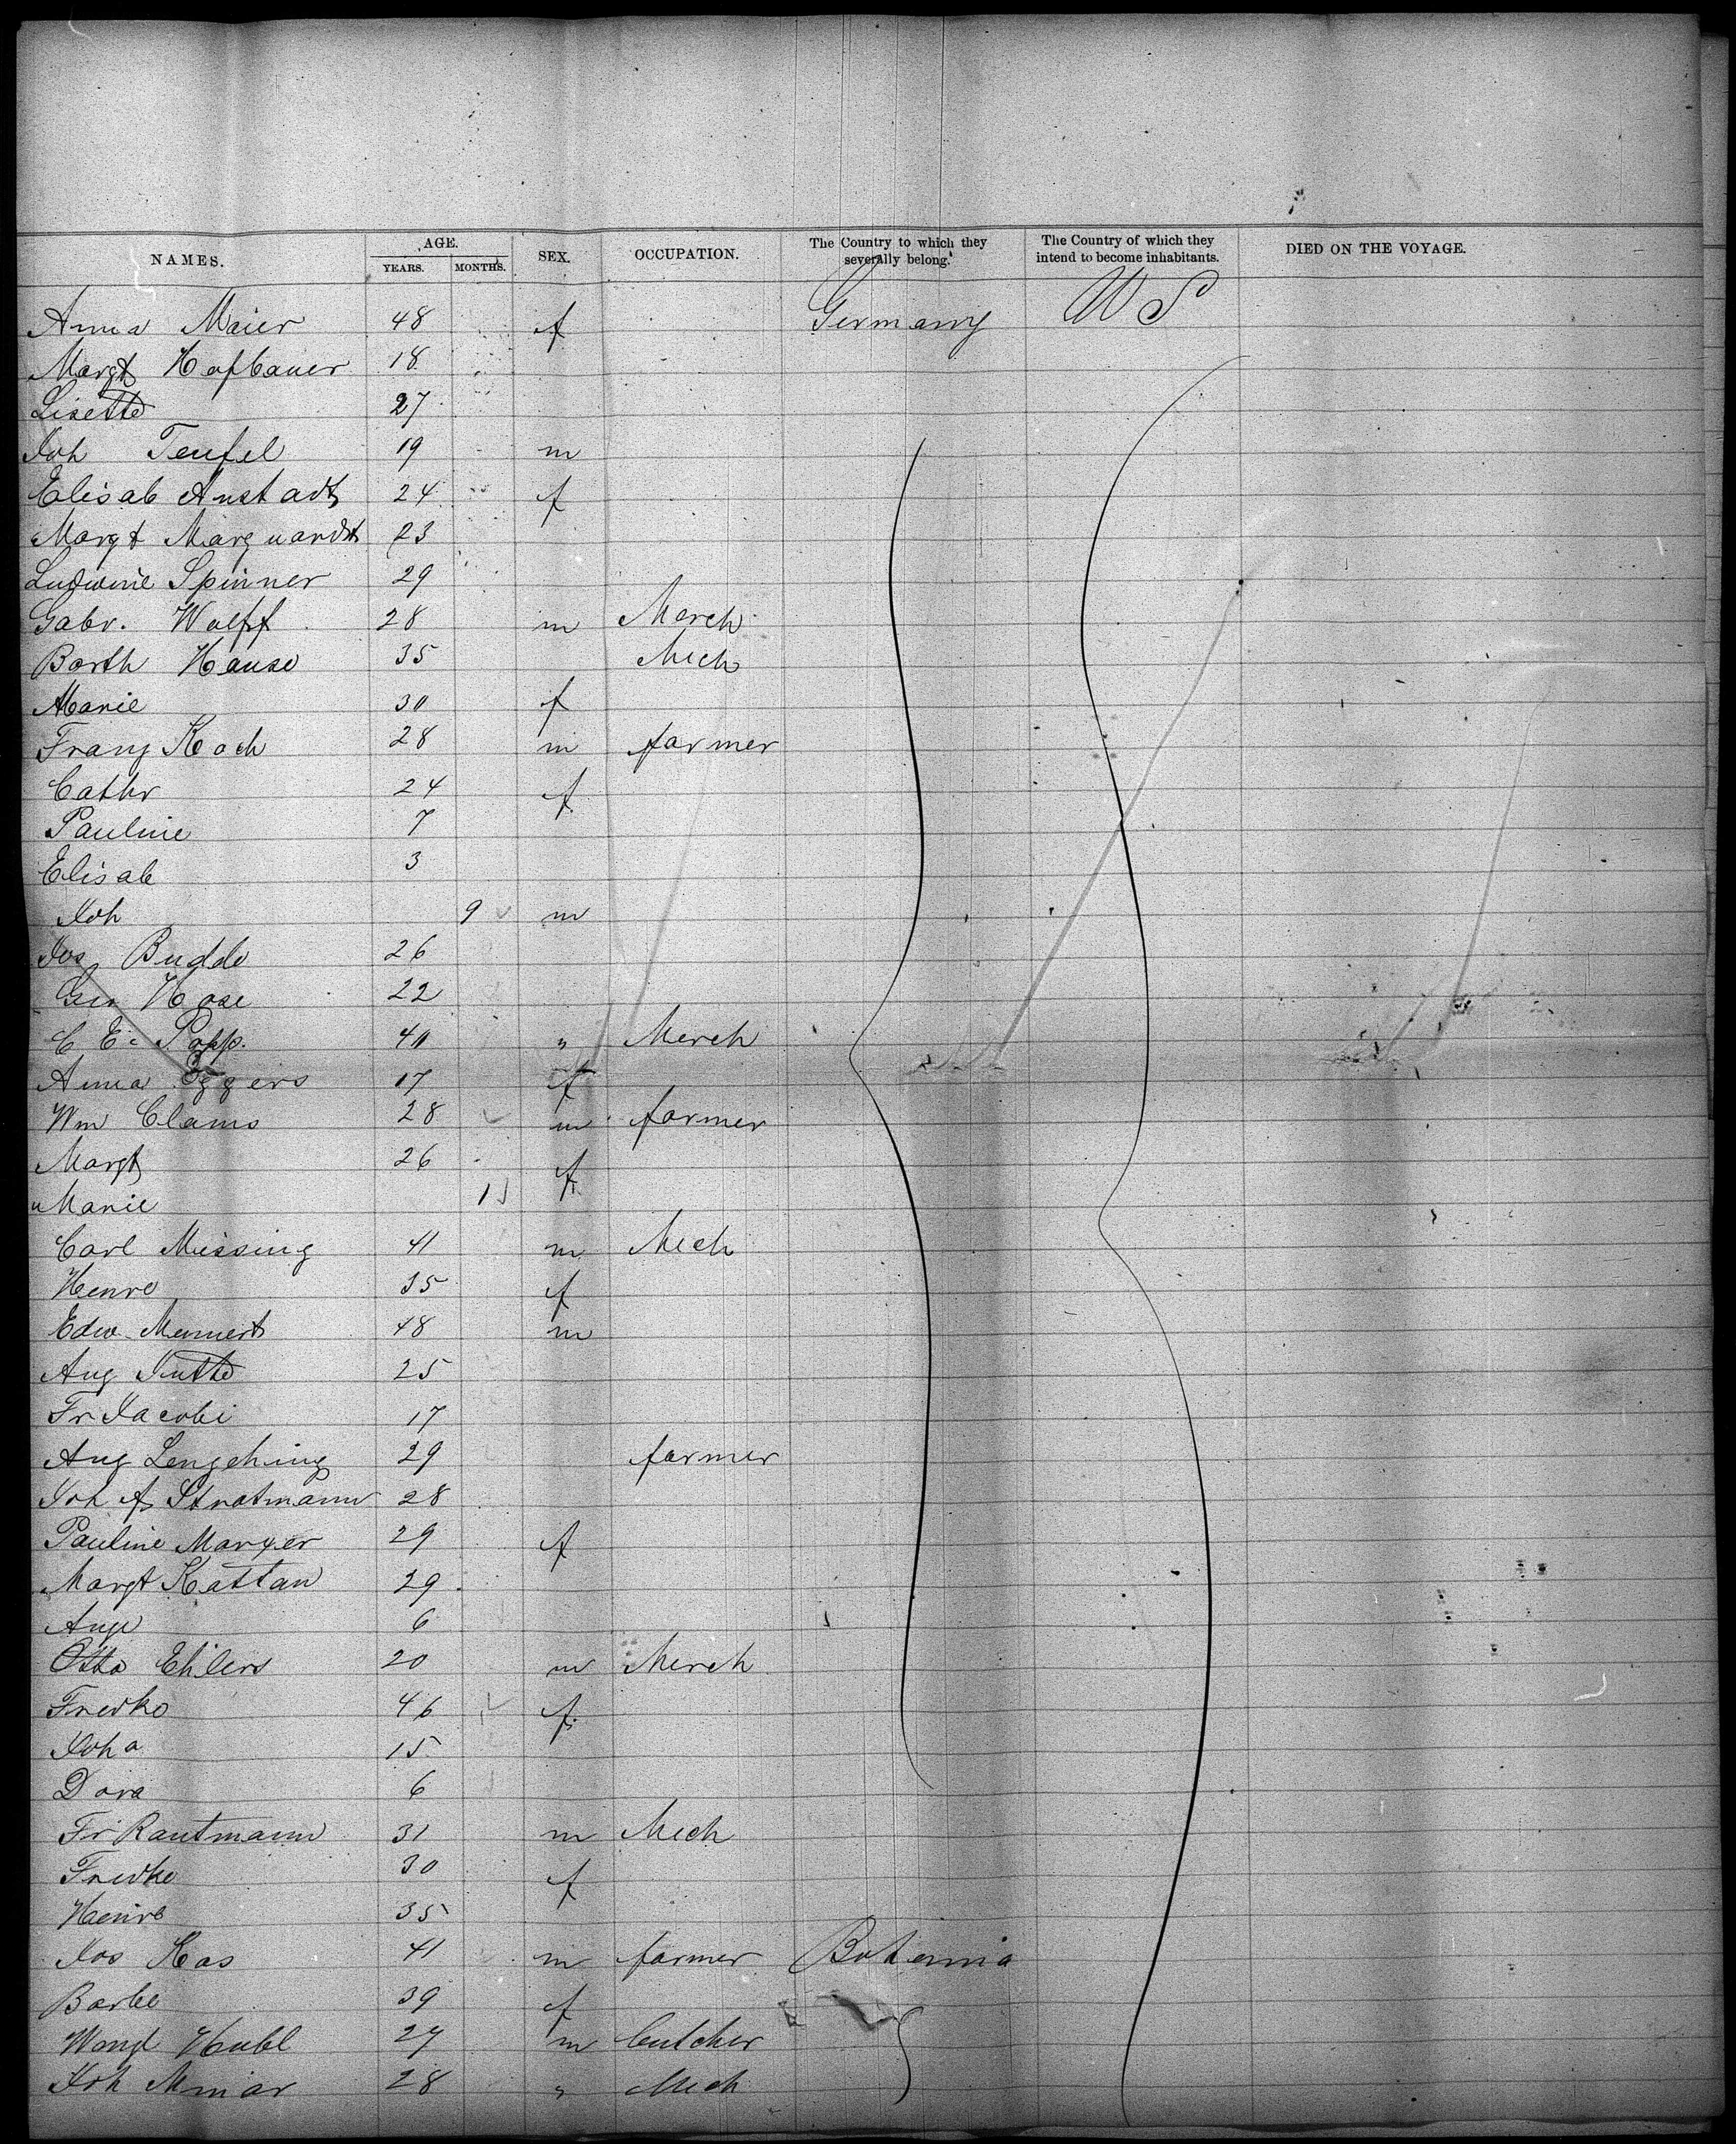 NAMES. AGE. SEX. OCCUPATION. The Country to which they severally belong. The Country of which they intend to become inhabitants. DIED ON THE VOYAGE.
YEARS. MONTHS.
Anna Maier 48 f Germany US
Margt Hofbauer 18
Lisette 27
Joh Teufel 19 m
Elisab Anstadt 24 f
Margt Marquardt 23
Ludwine Spinner 29
Gabr. Wolff 28 m Merch
Barth Hause 35 Mech
Marie 30 f
Franz Koch 28 m farmer
Cathr 24 f
Pauline 7
Elisab 3
Joh 9 m
Jos Budde 26
Hose 22
C E Popp. 40 " Merch
Anna Eggers 17 f
Wm Clams 28 m farmer
Margt 26 f
Marie 1
Carl Missing 41 m Mech
Henre 35 f
Edw Memert 48 m
Aug Jutte 25
Fr Jacobi 17
Aug Lengehing 29 farmer
Joh A Stratmann 28
Pauline Marxer 29 f
Margt Kattan 29
Auge 6
Otto Ehlers 20 m Merch
Fredke 46 f
Joha 15
Dora 6
Fr Rautmann 31 m Mech
Fredke 30 f
Henre 35
Jos Kas 41 m farmer Bohemia
Barbe 39 f
Wenzl Hubl 27 m butcher
Joh Mniar 28 " Mech